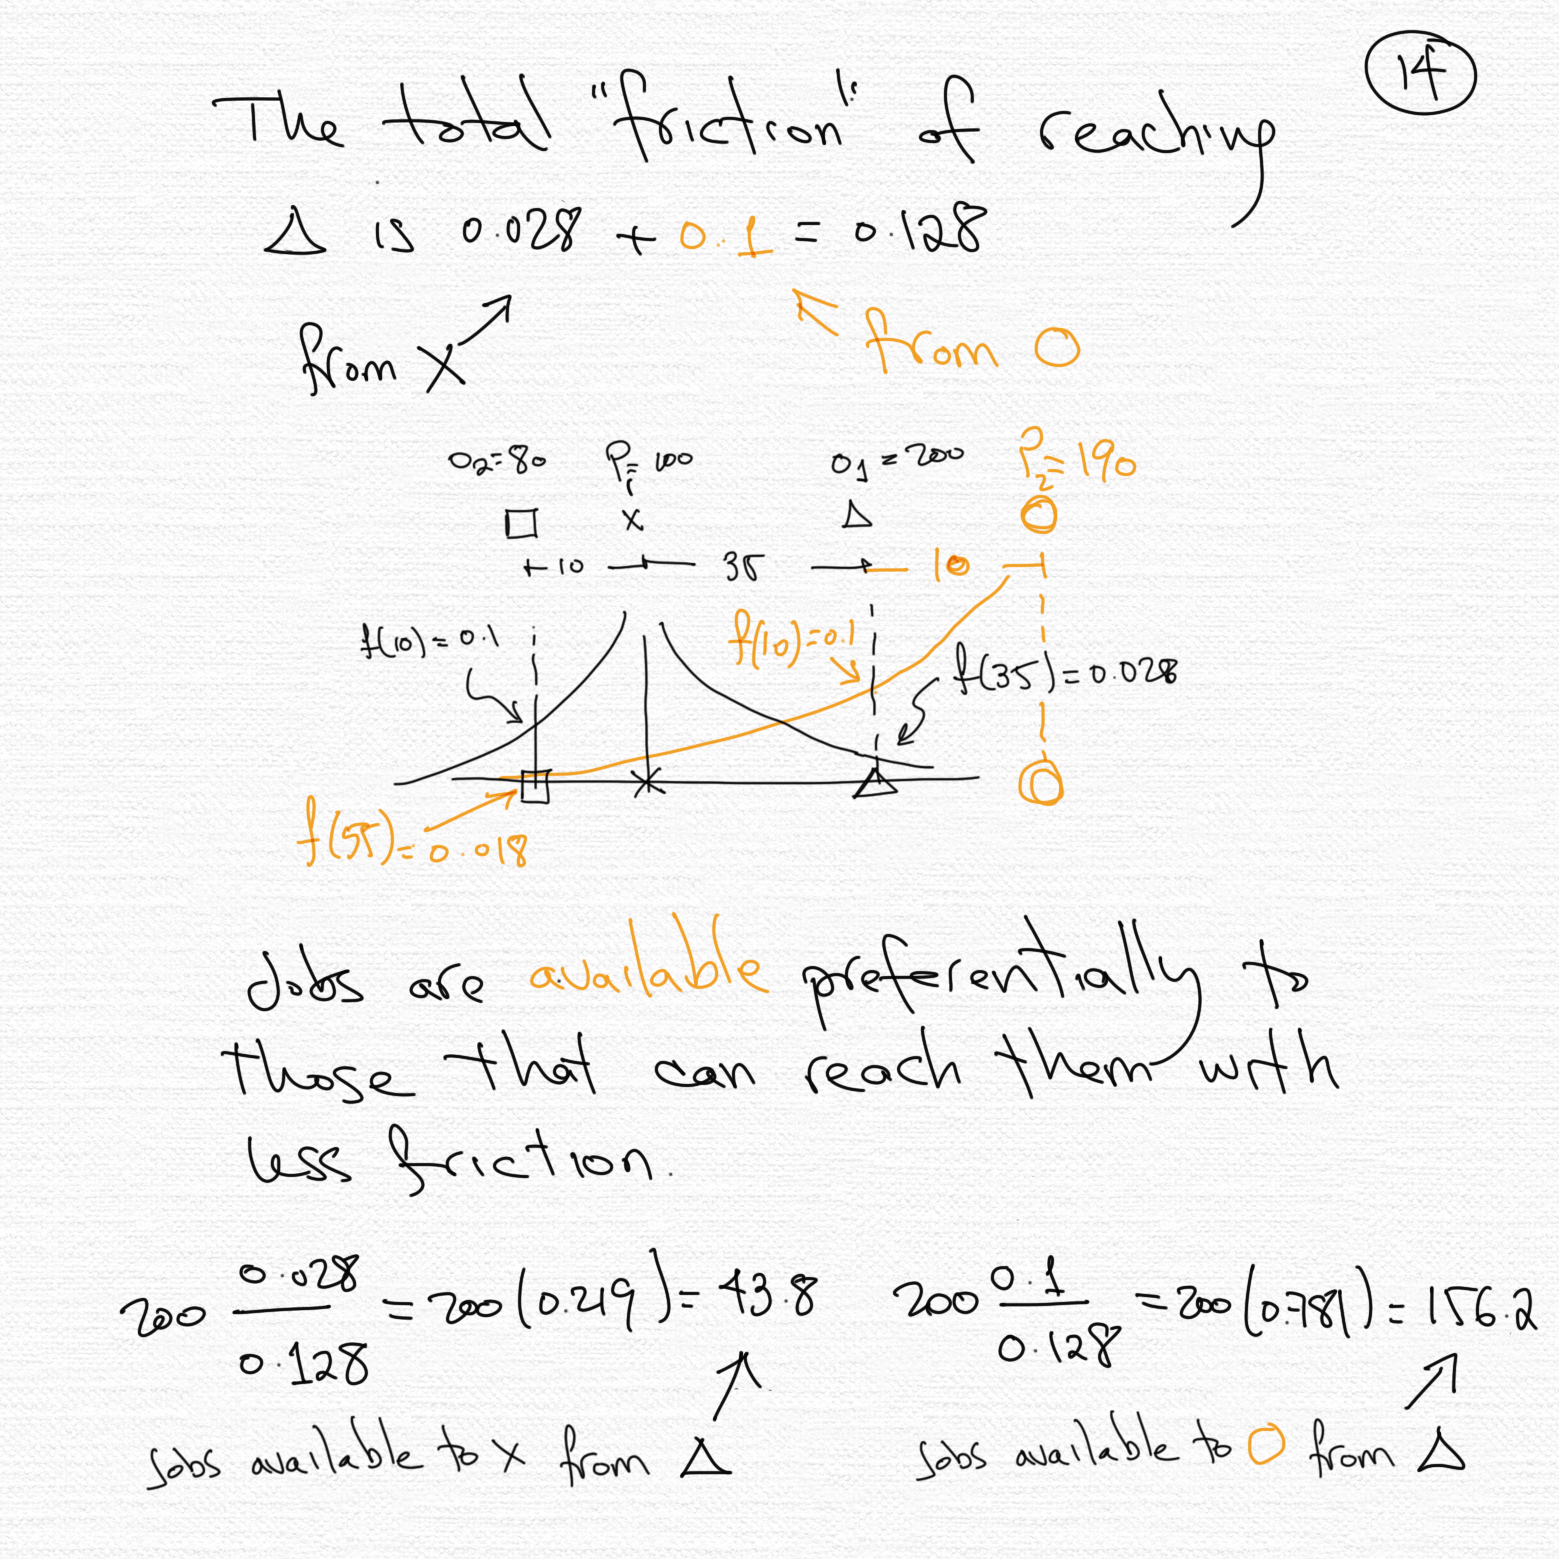 14
The total "friction" of reaching
△ is 0.028 + 0.1 = 0.128
from X from O
O2=80 P1=100 O1=200 P2=190
□ X △ O
10 35 10
f(10)=0.1 f(10)=0.1 f(35)=0.028
f(55)=0.018
Jobs are available preferentially to
those that can reach them with
less friction.
200 0.028/0.128 = 200(0.219) = 43.8 200 0.1/0.128 = 200(0.781) = 156.2
Jobs available to X from △ Jobs available to O from △